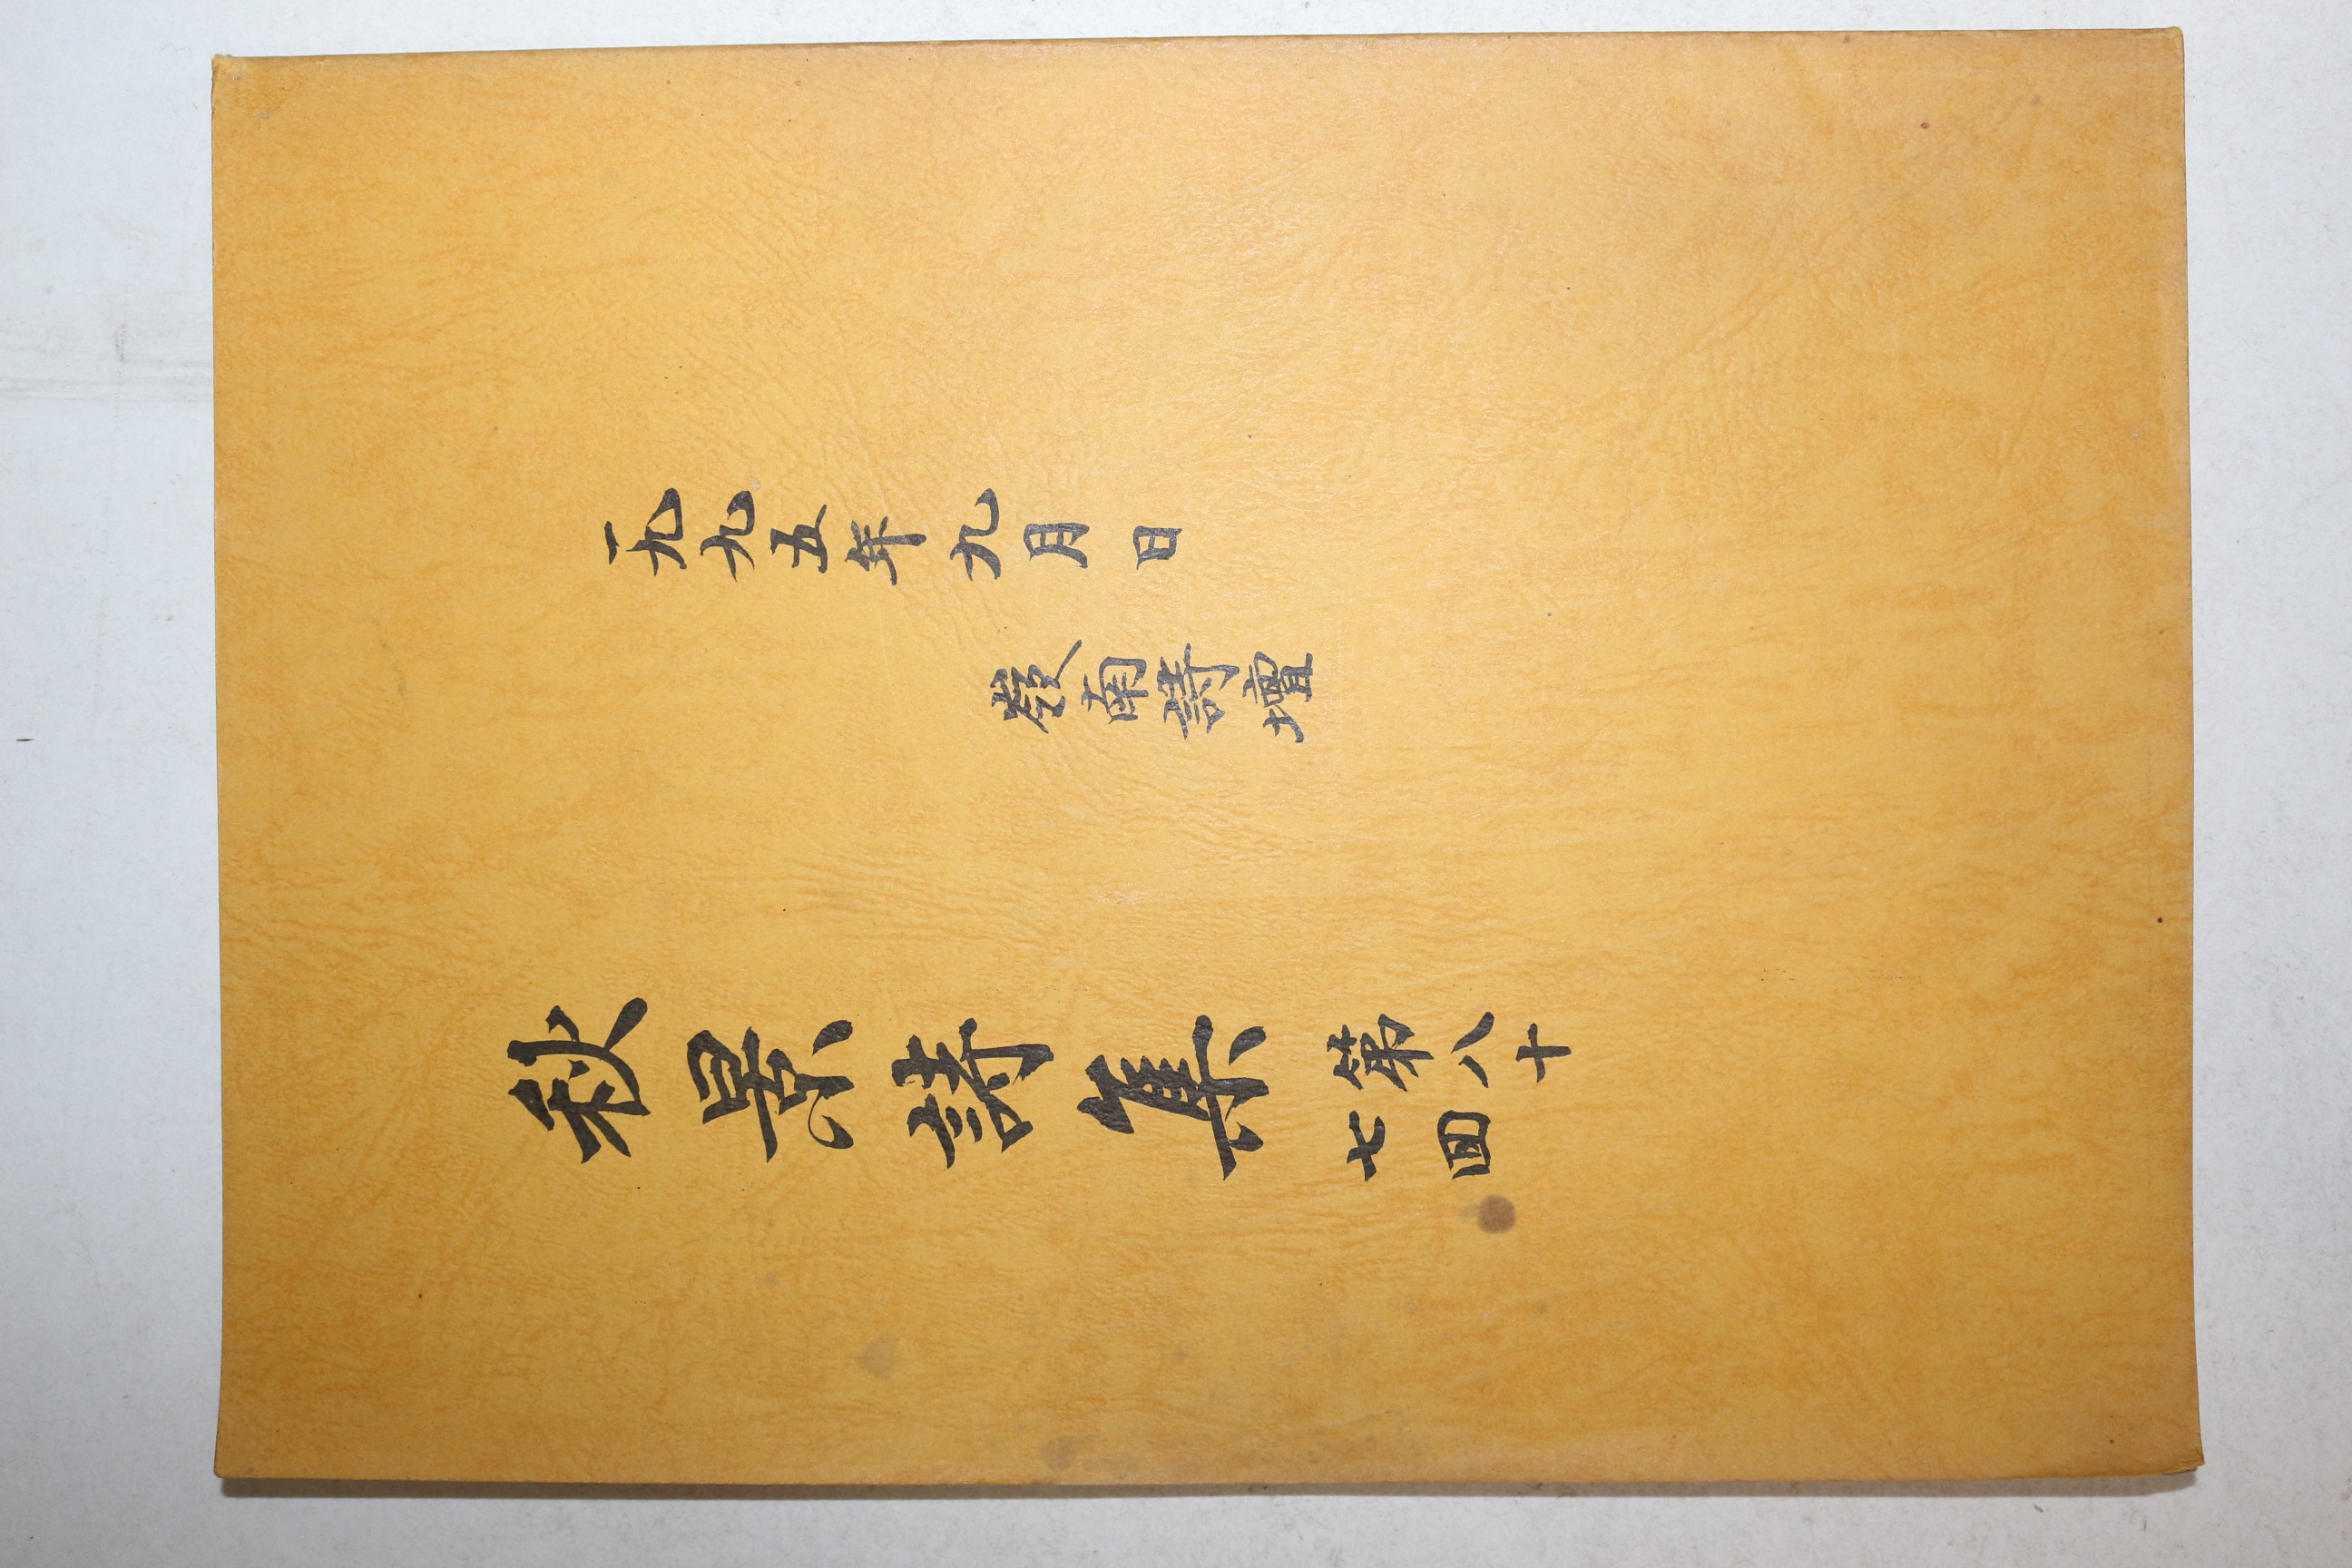 一九九五年九月 日
嶺南詩壇
秋景詩集
第八十
七回